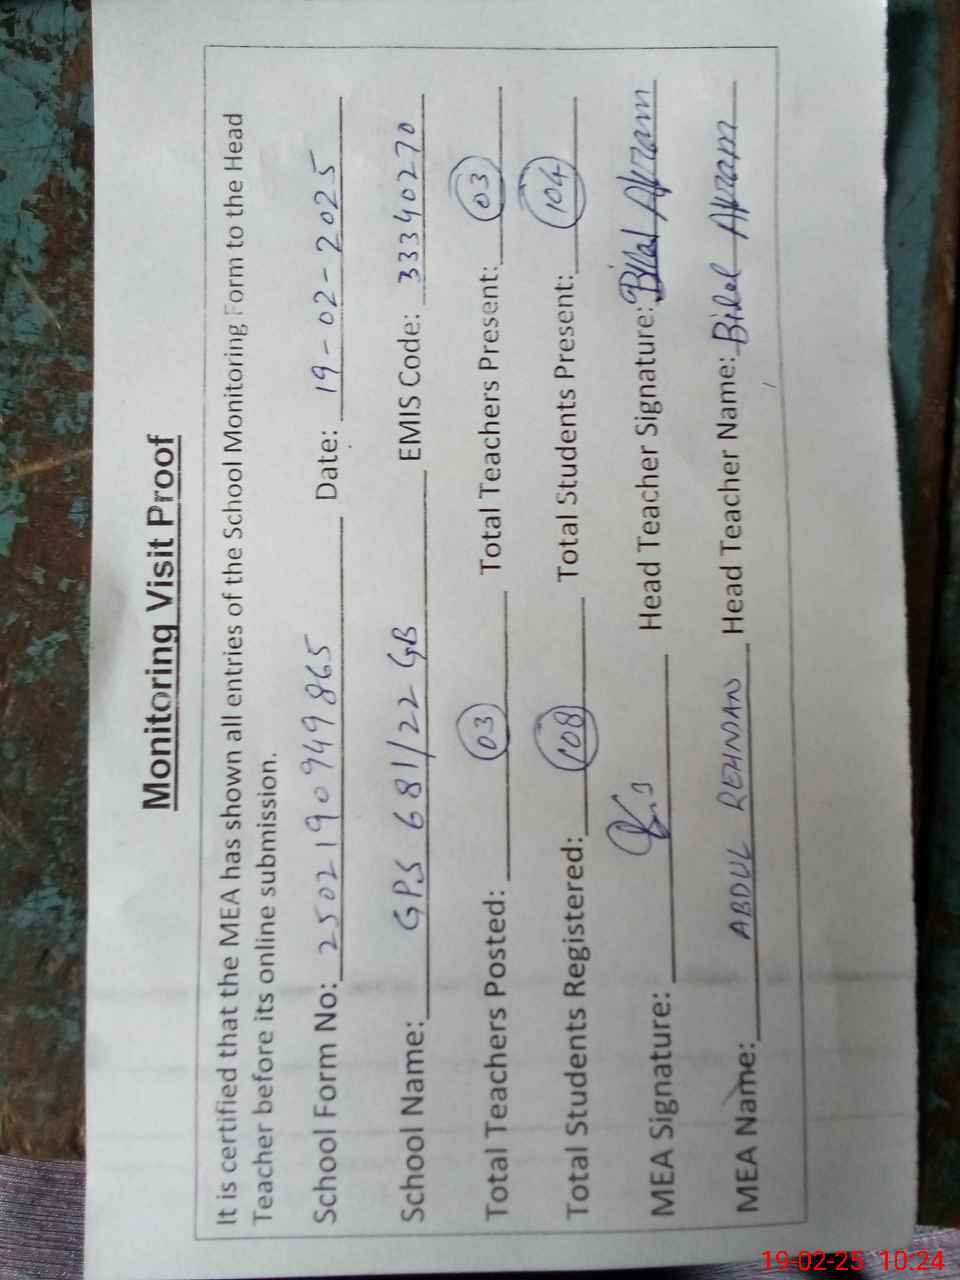 Monitoring Visit Proof
It is certified that the MEA has shown all entries of the School Monitoring Form to the Head
Teacher before its online submission.
School Form No: 250219094 9865 Date: 19-02-2025
School Name: GPS 681/22 GB EMIS Code: 33340270
Total Teachers Posted: 03 Total Teachers Present: 03
Total Students Registered: 108 Total Students Present: 104
MEA Signature: Head Teacher Signature: Bilal Akram
MEA Name: ABDUL REHMAN Head Teacher Name: Bilal Akram
19-02-25 10:24